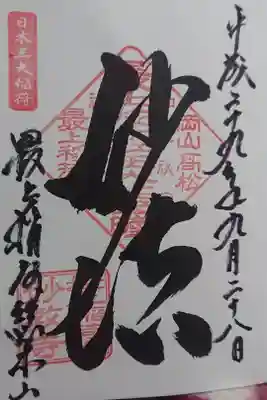 平成二十九年九月二十八日
岡山高松
最上稲荷
妙法
日本三大稲荷
最上稲荷総本山
妙教寺